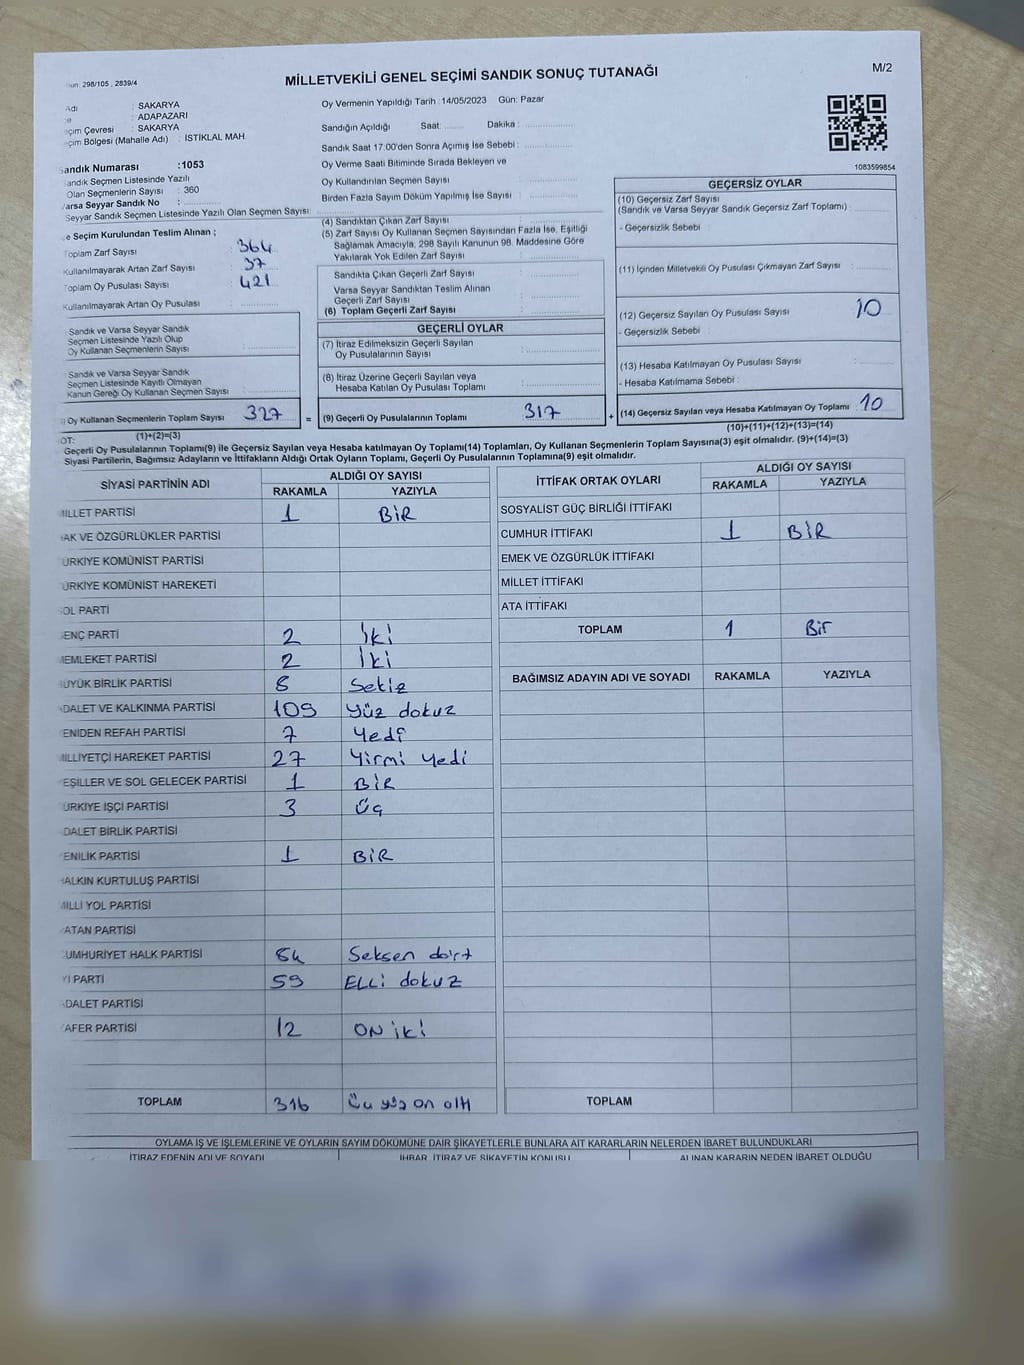 298/105 , 2839/4
MİLLETVEKİLİ GENEL SEÇİMİ SANDIK SONUÇ TUTANAĞI
M/2
: SAKARYA
: ADAPAZARI
Çevresi : SAKARYA
Bölgesi (Mahalle Adı) : İSTİKLAL MAH.
Oy Vermenin Yapıldığı Tarih :14/05/2023 Gün: Pazar
Sandığın Açıldığı Saat: Dakika :
Sandık Saat 17:00'den Sonra Açımış İse Sebebi :
Oy Verme Saati Bitiminde Sırada Bekleyen ve
Oy Kullandırılan Seçmen Sayısı
Birden Fazla Sayım Döküm Yapılmış İse Sayısı :
1083599854
Sandık Numarası :1053
Sandık Seçmen Listesinde Yazılı
Olan Seçmenlerin Sayısı : 360
Varsa Seyyar Sandık No :
Seyyar Sandık Seçmen Listesinde Yazılı Olan Seçmen Sayısı:
Seçim Kurulundan Teslim Alınan ;
Toplam Zarf Sayısı : 364
Kullanılmayarak Artan Zarf Sayısı : 37
Toplam Oy Pusulası Sayısı : 421
Kullanılmayarak Artan Oy Pusulası :
Sandık ve Varsa Seyyar Sandık
Seçmen Listesinde Yazılı Olup
Oy Kullanan Seçmenlerin Sayısı :
Sandık ve Varsa Seyyar Sandık
Seçmen Listesinde Kayıtlı Olmayan
Kanun Gereği Oy Kullanan Seçmen Sayısı :
Oy Kullanan Seçmenlerin Toplam Sayısı 327 =
(1)+(2)=(3)
(4) Sandıktan Çıkan Zarf Sayısı :
(5) Zarf Sayısı Oy Kullanan Seçmen Sayısından Fazla İse, Eşitliği
Sağlamak Amacıyla, 298 Sayılı Kanunun 98. Maddesine Göre
Yakılarak Yok Edilen Zarf Sayısı :
Sandıkta Çıkan Geçerli Zarf Sayısı :
Varsa Seyyar Sandıktan Teslim Alınan
Geçerli Zarf Sayısı :
(6) Toplam Geçerli Zarf Sayısı :
GEÇERLİ OYLAR
(7) İtiraz Edilmeksizin Geçerli Sayılan
Oy Pusulalarının Sayısı :
(8) İtiraz Üzerine Geçerli Sayılan veya
Hesaba Katılan Oy Pusulası Toplamı :
(9) Geçerli Oy Pusulalarının Toplamı 317 +
GEÇERSİZ OYLAR
(10) Geçersiz Zarf Sayısı
(Sandık ve Varsa Seyyar Sandık Geçersiz Zarf Toplamı) :
- Geçersizlik Sebebi :
(11) İçinden Milletvekili Oy Pusulası Çıkmayan Zarf Sayısı :
(12) Geçersiz Sayılan Oy Pusulası Sayısı : 10
- Geçersizlik Sebebi :
(13) Hesaba Katılmayan Oy Pusulası Sayısı :
- Hesaba Katılmama Sebebi :
(14) Geçersiz Sayılan veya Hesaba Katılmayan Oy Toplamı : 10
(10)+(11)+(12)+(13)=(14)
Geçerli Oy Pusulalarının Toplamı(9) ile Geçersiz Sayılan veya Hesaba katılmayan Oy Toplamı(14) Toplamları, Oy Kullanan Seçmenlerin Toplam Sayısına(3) eşit olmalıdır. (9)+(14)=(3)
Siyasi Partilerin, Bağımsız Adayların ve İttifakların Aldığı Ortak Oyların Toplamı, Geçerli Oy Pusulalarının Toplamına(9) eşit olmalıdır.
SİYASİ PARTİNİN ADI ALDIĞI OY SAYISI
RAKAMLA YAZIYLA
MİLLET PARTİSİ 1 BİR
HAK VE ÖZGÜRLÜKLER PARTİSİ
TÜRKİYE KOMÜNİST PARTİSİ
TÜRKİYE KOMÜNİST HAREKETİ
SOL PARTİ
GENÇ PARTİ 2 İki
MEMLEKET PARTİSİ 2 İki
BÜYÜK BİRLİK PARTİSİ 8 Sekiz
ADALET VE KALKINMA PARTİSİ 109 Yüz dokuz
YENİDEN REFAH PARTİSİ 7 Yedi
MİLLİYETÇİ HAREKET PARTİSİ 27 Yirmi yedi
YEŞİLLER VE SOL GELECEK PARTİSİ 1 BİR
TÜRKİYE İŞÇİ PARTİSİ 3 Üç
ADALET BİRLİK PARTİSİ
YENİLİK PARTİSİ 1 BİR
HALKIN KURTULUŞ PARTİSİ
MİLLİ YOL PARTİSİ
VATAN PARTİSİ
CUMHURİYET HALK PARTİSİ 84 Seksen dört
İYİ PARTİ 59 ELLi dokuz
ADALET PARTİSİ
ZAFER PARTİSİ 12 ON iki
TOPLAM 316 Üç yüz on altı
İTTİFAK ORTAK OYLARI ALDIĞI OY SAYISI
RAKAMLA YAZIYLA
SOSYALİST GÜÇ BİRLİĞİ İTTİFAKI
CUMHUR İTTİFAKI 1 BİR
EMEK VE ÖZGÜRLÜK İTTİFAKI
MİLLET İTTİFAKI
ATA İTTİFAKI
TOPLAM 1 Bir
BAĞIMSIZ ADAYIN ADI VE SOYADI RAKAMLA YAZIYLA
TOPLAM
OYLAMA İŞ VE İŞLEMLERİNE VE OYLARIN SAYIM DÖKÜMÜNE DAİR ŞİKAYETLERLE BUNLARA AİT KARARLARIN NELERDEN İBARET BULUNDUKLARI
İTİRAZ EDENİN ADI VE SOYADI İHBAR, İTİRAZ VE ŞİKAYETİN KONUSU ALINAN KARARIN NEDEN İBARET OLDUĞU